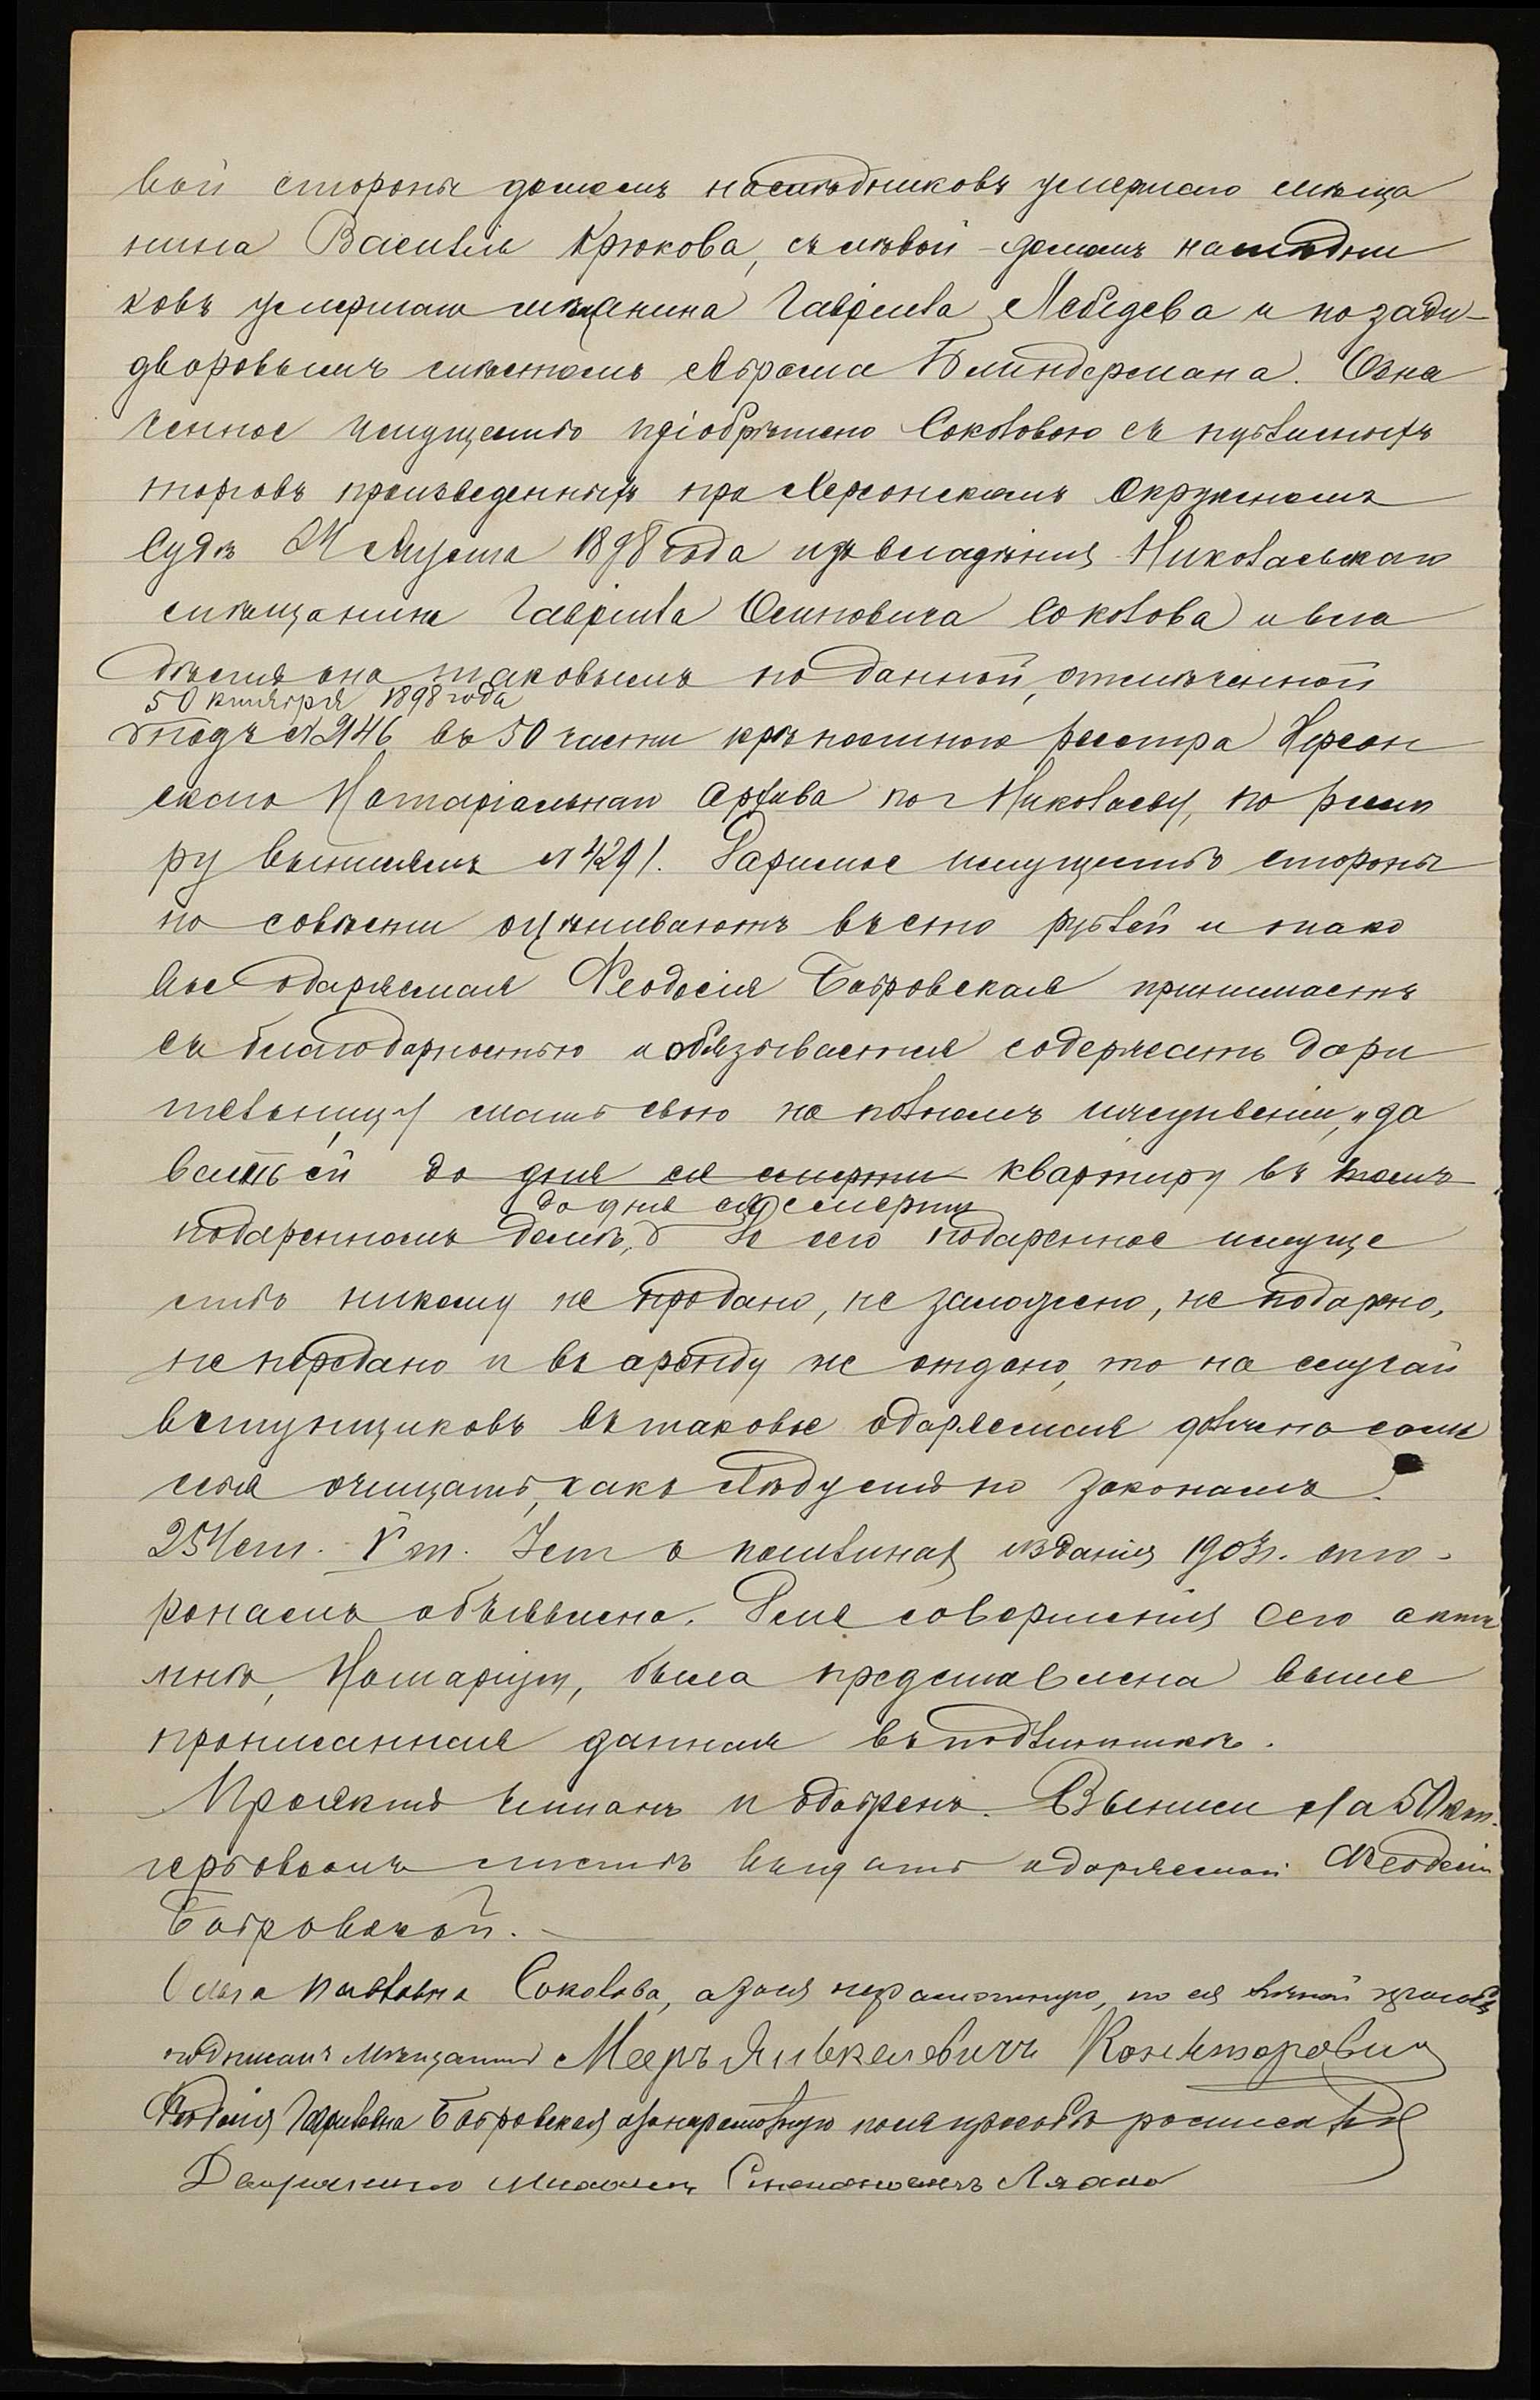 вой стороны домомъ наслѣдниковъ умершаго мѣща
нина Василія Крюкова, съ лѣвой – домомъ наслѣдни
ковъ умершаго мѣщанина Гавріила Лебедева и позади –
дворовымъ мѣстомъ Абрама Блиндермана. Озна
ченное имущество пріобрѣтено Соколовою съ публичныхъ
торговъ произведенныхъ при Херсонскомъ Окружномъ
Судѣ 24 Августа 1898 года изъ владѣнія Николаевскаго
мѣщанина Гавріила Осиповича Соколова и вла
дѣетъ она таковымъ по данной, отмѣченной
5 Октября 1898 года
подъ № 2146 въ 50 части крѣпостного реестра Херсон
скаго Нотаріальнаго Архива по г. Николаеву, по реест
ру выписямъ № 4291. Даримое имущество стороны
по совѣсти оцѣниваютъ въ сто рублей и тако
вое одаряемая Феодосія Бобровская принимаетъ
съ благодарностью и обязывается содержать дари
тельницу мать свою на полномъ иждивеніи, и да
вать ей до дня ея смерти квартиру въ томъ
до дня ея смерти
подаренномъ домѣ, До сего подаренное имуще
ство никому не продано, не заложено, не подарено,
не передано и въ аренду не отдано, то на случай
вступщиковъ въ таковое одаряемая должна сама
себя очищать, какъ слѣдуетъ по законамъ.
254 ст. V т. Уст. о пошлинахъ изданія 1903 г. сто-
ронамъ объявлена. Для совершенія сего акта
мнѣ, Нотаріусу, была представлена выше
прописанная данная въ подлинникѣ.
Проектъ читанъ и одобренъ. Выпись на 50 коп.
гербовомъ листѣ выдать одаряемой Феодосіи
Бобровской. –
Ольга Павловна Соколова, а за нея неграмотную, по ея личной просьбѣ
подписалъ Мѣщанинъ Мееръ Янкелевичъ Контаровичъ
Феодосія Гавриловна Бобровская а за неграмотную по ея просьбѣ росписался
Дворянинъ Михаилъ Степановичъ